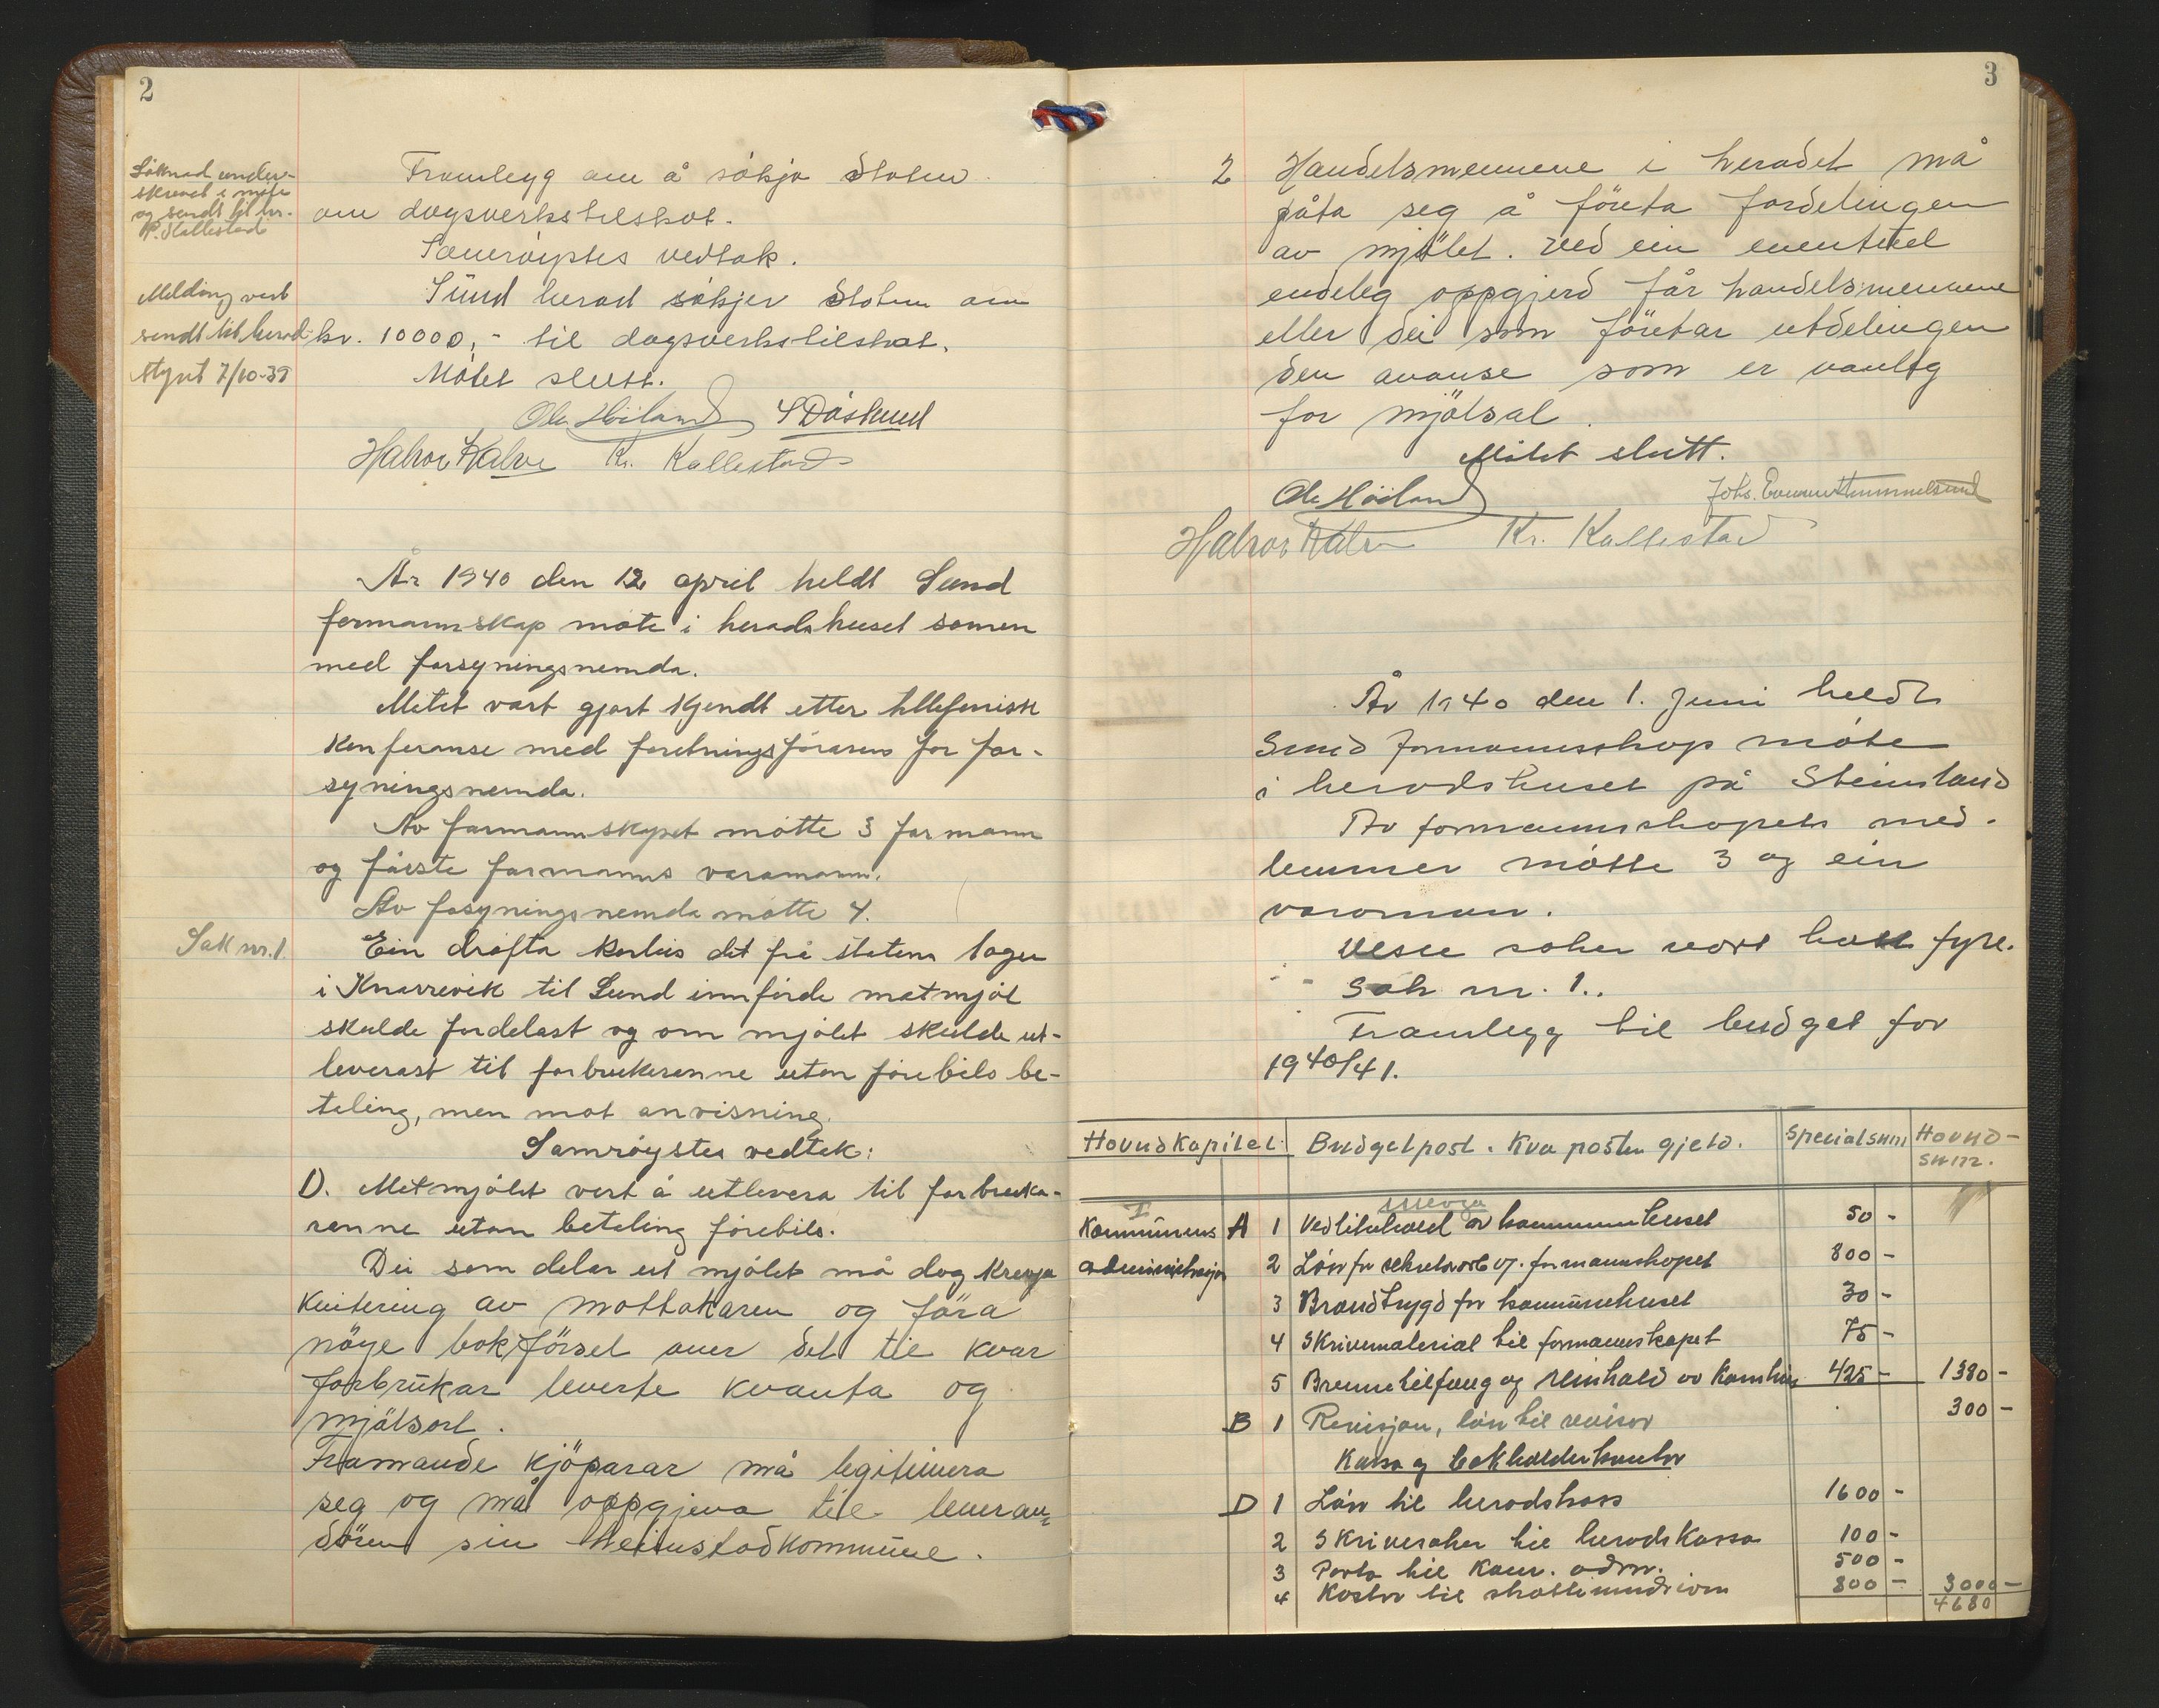 2
Søknad under-
skreve i møte
og sendt til hr.
P. Kallestad
Melding vart
sendt til herad-
styret 7/10-39
Framlegg om å søkja Staten
om dagsverkstilskot.
Samrøystes vedtak.
Sund herad søkjer Staten om
kr. 10000,- til dagsverkstilskot.
Møtet slutt.
Ole Höiland
Halvor Kalve Kr. Kallestad
År 1940 den 12 april heldt Sund
formannskap møte i heradshuset saman
med forsyningsnemda.
Møtet vart gjort kjendt etter tellefonisk
konferanse med foretningsførarens for for-
syningsnemda.
Av formannskapet møtte 3 formann
og første formanns varamann.
Av fosyningsnemda møtte 4.
Sak nr. 1
Ein drøfta korleis det frå statens lager
i Knarrevik til Sund innførde matmjøl
skulde fordelast og om mjølet skulde ut-
leverast til forbrukeranne utan førebils be-
taling, men mot anvisning.
Samrøystes vedtak:
1). Matmjølet vert å utlevera til forbruka-
ranne utan betaling førebils.
Dei som delar ut mjølet må dog krevja
kvitering av mottakaren og föra
nöye bokförsel over det til kvar
forbrukar leverte kvanta og
mjölsort.
Framande kjöparar må legitimera
seg og må oppgjeva til leveran-
dören sin heimstadkommune.
3
2 Handelsmennene i heradet må
påta seg å företa fordelingen
av mjölet. Ved ein eventuel
endeleg oppgjerd får handelsmennene
eller dei som företar utdelingen
den avanse som er vanleg
for mjölsal.
Møtet slutt.
Ole Höiland
Halvor Kalve Kr. Kallestad
År 1940 den 1. Juni heldt
Sund formannskap møte
i heradshuset på Steinsland
Av formannskapets med-
lemmer møtte 3 og ein
varamann.
Desse saker vart havt fyre.
Sak nr. 1.
Framlegg til budget for
1940/41.
Hovudkapitel. Budgetpost. Kva posten gjeld. Specialsum Hovud-
sum.
I
Kommunens A 1 Vedlikehald av kommunehuset 50 -
administrasjon 2 Løn for sekretær v. formannskapet 800 -
3 Brandtrygd for kommunehuset 30 -
4 Skrivematerial til formannskapet 75 -
5 Brennetilfang og reinhald av Komhus 425 - 1380 -
B 1 Revisjon, løn til revisor 300 -
Kassa og bokholderkontor
D 1 Løn til heradskass 1600 -
2 Skrivesaker til heradskassa 100 -
3 Porto til Kom. adm. 500 -
4 Kostn til 800 - 3000 -
4680